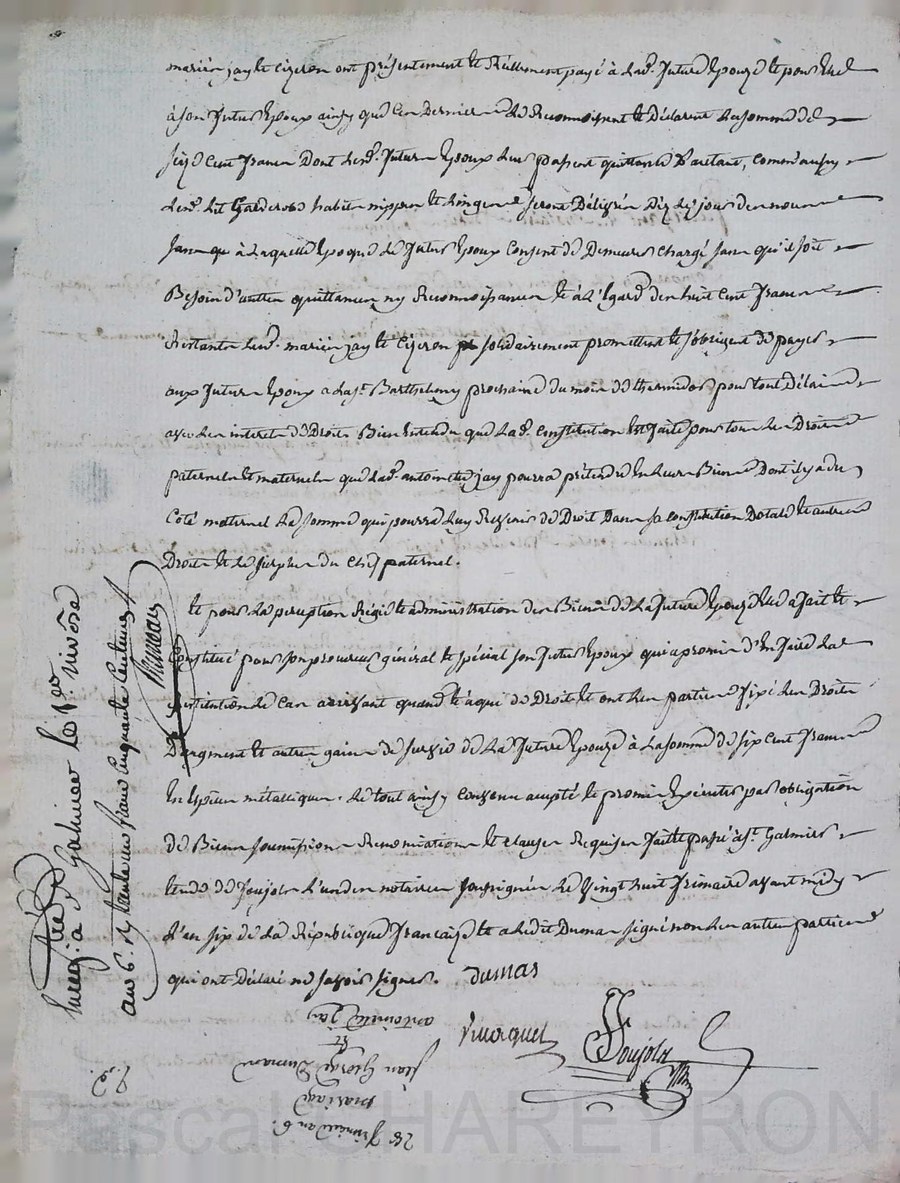 mariés jay et Cizeron ont présentement et Réellement payé à lad. future Epouze et pour Elle
à son futur Epoux ainsy que ces derniers le Reconnoissent et Déclarent la somme de
Six Cent francs Dont lesd. futurs Epoux leur passent quittance D'autant, comme aussy
lesd. lit Garderobe habits nippes et linges seront Délivrés Déz le jour des nouces
jusqu'à laquelle Epoque le futur Epoux Consent de Demeurer Chargé sans qu'il soit
Besoin d'autres quittances ny Reconnoissances et à l'Egard des huit Cent francs
Restants lesd. mariés jay et Cizeron solidairement promettent et s'obligent de payer
aux futurs Epoux a la st. Barthelemy prochaine du mois de thermidor pour tout Délai
avec les interets de Droit. Bien entendu que lad. Constitution Est faite pour tous les Droits
paternels et maternels que lad. antoinette jay pourra prétendre En leurs Biens Dont il y a du
Coté maternel la somme qui pourra luy Revenir de Droit Dans sa constitution Dotale et autres
Droits et le surplus du Chef paternel.
Et pour la perception Régie et administration des Biens de la future Epouze Elle a fait et
Constitué pour son procureur général et spécial son futur Epoux qui a promis d'En faire la
Restitution le Cas arrivant quand et à qui de Droit et ont les parties fixé les Droits
D'augment et autres gains de survie de la future Epouze à la somme de six cent francs
En Espèces métalliques. Le tout ainsy Convenu accepté et promis Exécuter par obligation
de Biens soumissions Renonciations et clauses Requises fait et passé à st. Galmier
Etude de Joujoly l'un des notaires soussignés le vingt huit frimaire avant midy
L'an six de la République française et a ledit Dumas signé non les autres parties
qui ont Déclaré ne savoir signer. Dumas
Joujoly
Enreg. a St Galmier le 1er. Nivôse
an 6. Ry trente un francs cinquante centimes
28 frimaire an 6.
mariage
jean George Dumas
Et
antoinette Jay
Pascal CHAREYRON